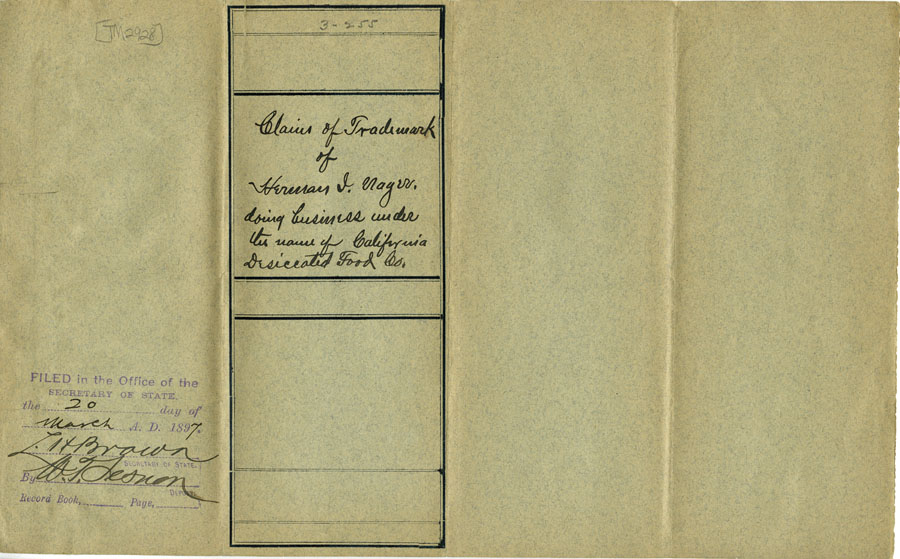 [TM2928]
3-255
Claim of Trademark
of
Herman I.
doing business under
the name of California
Desiccated Food Co.
FILED in the Office of the
SECRETARY OF STATE,
the 20 day of
March A. D. 1897.
L. H Brown
SECRETARY OF STATE.
By W. T.
DEPUTY
Record Book, Page,